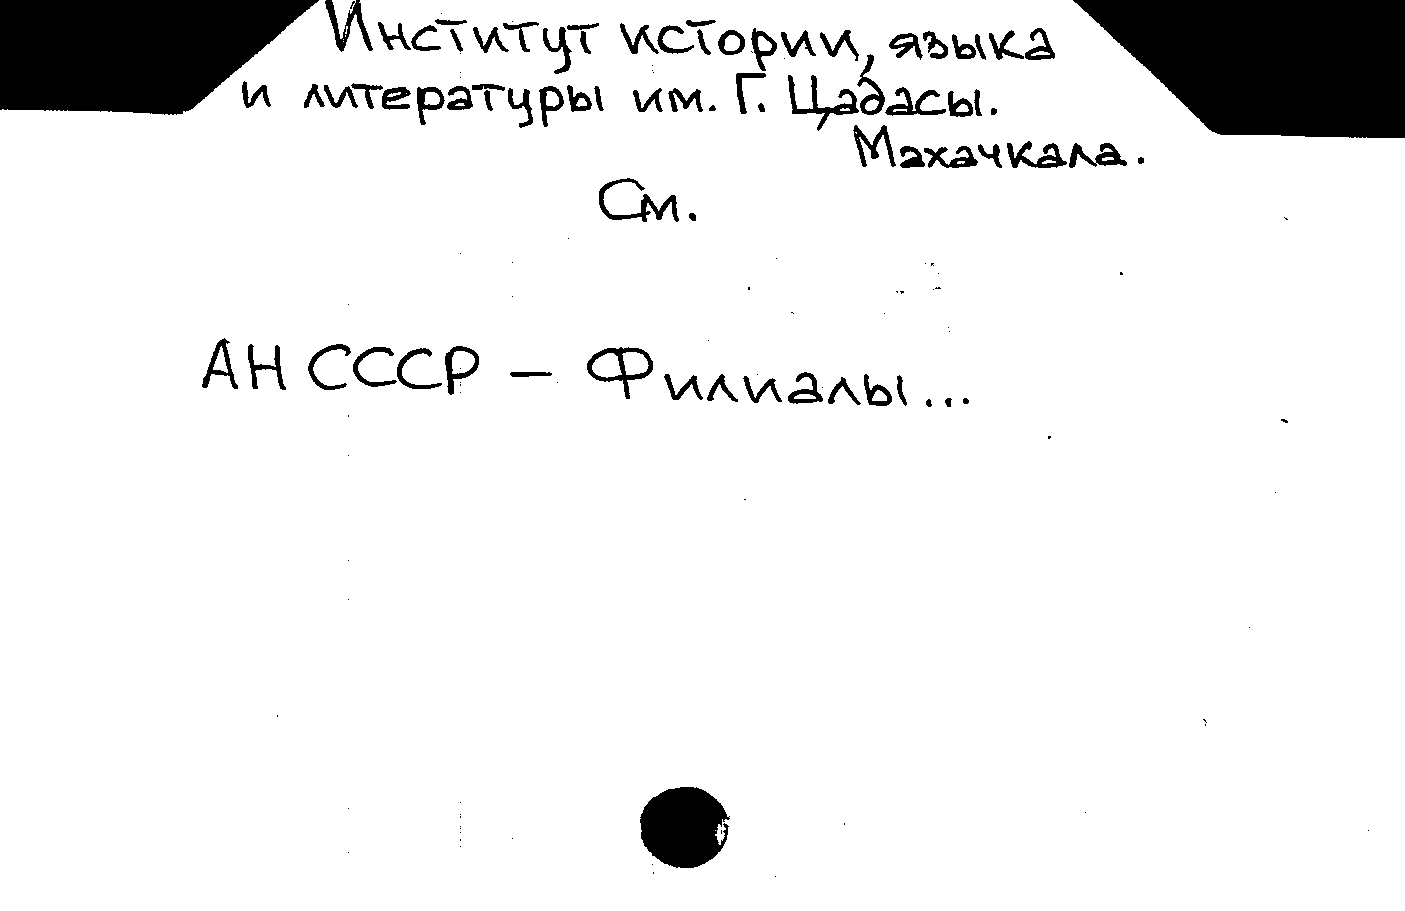 Институт истории, языка
и литературы им. Г. Цадасы.
Махачкала.
См.
АН СССР – Филиалы...